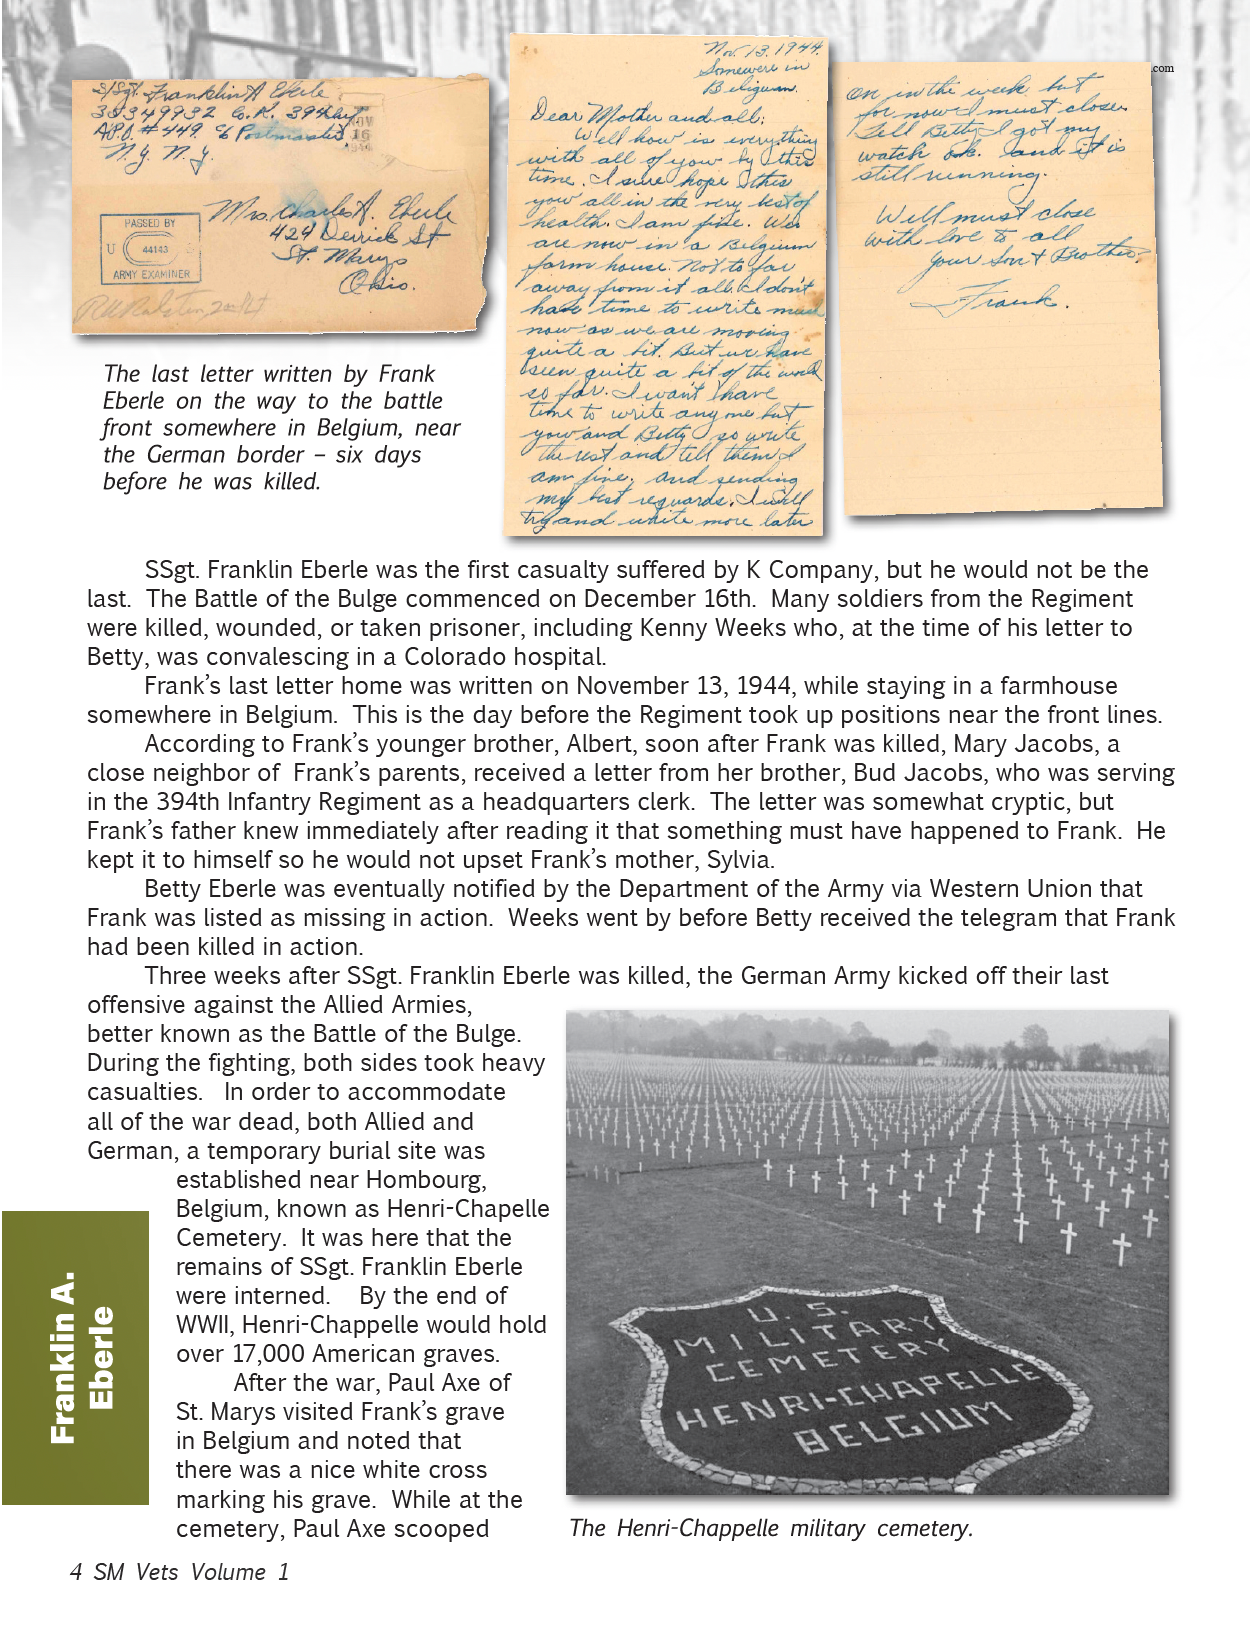 S/Sgt. Franklin A Eberle
35349932 Co. K. 394th Inf
A.P.O. #449 % Postmaster,
N.Y. N.Y.
NOV
16
1944
Mrs. Charles A. Eberle
424 Derrick St
St. Marys
Ohio.
PASSED BY
U 44143 S
ARMY EXAMINER
Nov. 13. 1944.
Somewere in
Beligium.
Dear Mother and all:
Well how is everything
with all of you by this
time. I sure hope this
you all in the very best of
health. I am fine. We
are now in a Belgium
farm house. Not to far
away from it all. I don't
have time to write much
now as we are moving
quite a bit. But we have
seen quite a bit of the world
so far. I wan't have
time to write any one but
you and Betty so write
the rest and tell them I
am fine. and sending
my best reguards. I will
try and write more later
on in the week but
for now I must close.
Tell Betty I got my
watch ok. and it is
still running.
Well must close
with love to all
your Son & Brother.
Frank.
.com
The last letter written by Frank
Eberle on the way to the battle
front somewhere in Belgium, near
the German border – six days
before he was killed.
SSgt. Franklin Eberle was the first casualty suffered by K Company, but he would not be the
last. The Battle of the Bulge commenced on December 16th. Many soldiers from the Regiment
were killed, wounded, or taken prisoner, including Kenny Weeks who, at the time of his letter to
Betty, was convalescing in a Colorado hospital.
Frank's last letter home was written on November 13, 1944, while staying in a farmhouse
somewhere in Belgium. This is the day before the Regiment took up positions near the front lines.
According to Frank's younger brother, Albert, soon after Frank was killed, Mary Jacobs, a
close neighbor of Frank's parents, received a letter from her brother, Bud Jacobs, who was serving
in the 394th Infantry Regiment as a headquarters clerk. The letter was somewhat cryptic, but
Frank's father knew immediately after reading it that something must have happened to Frank. He
kept it to himself so he would not upset Frank's mother, Sylvia.
Betty Eberle was eventually notified by the Department of the Army via Western Union that
Frank was listed as missing in action. Weeks went by before Betty received the telegram that Frank
had been killed in action.
Three weeks after SSgt. Franklin Eberle was killed, the German Army kicked off their last
offensive against the Allied Armies,
better known as the Battle of the Bulge.
During the fighting, both sides took heavy
casualties. In order to accommodate
all of the war dead, both Allied and
German, a temporary burial site was
established near Hombourg,
Belgium, known as Henri-Chapelle
Cemetery. It was here that the
remains of SSgt. Franklin Eberle
were interned. By the end of
WWII, Henri-Chappelle would hold
over 17,000 American graves.
After the war, Paul Axe of
St. Marys visited Frank's grave
in Belgium and noted that
there was a nice white cross
marking his grave. While at the
cemetery, Paul Axe scooped
U. S.
MILITARY
CEMETERY
HENRI-CHAPELLE
BELGIUM
The Henri-Chappelle military cemetery.
Franklin A.
Eberle
4 SM Vets Volume 1